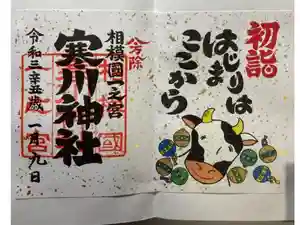 初詣
はじまりは
ここから
八方除
相模國一之宮
寒川神社
令和三辛丑歳 一月九日